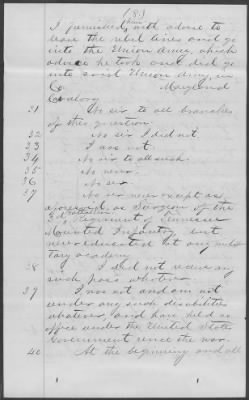 (83)
I furnished him with advice to
leave the rebel lines and go
into the Union Army, which
advice he took and did go
into said Union Army, in
Co. Maryland
Cavalry
31 No sir to all branches
of this question.
32 No sir I did not.
33 I was not.
34 No sir to all such.
35 No never.
36 No sir.
37 No sir never except as
aforesaid, as Surgeon of the
3d Regiment of Tennessee
Mounted Infantry, but
never educated at any mili
tary academy.
38 I did not receive any
such pass whatever.
39 I was not and am not
under any such disabilities
whatever, and have held no
office under the United States
Government since the war.
40 At the beginning and all